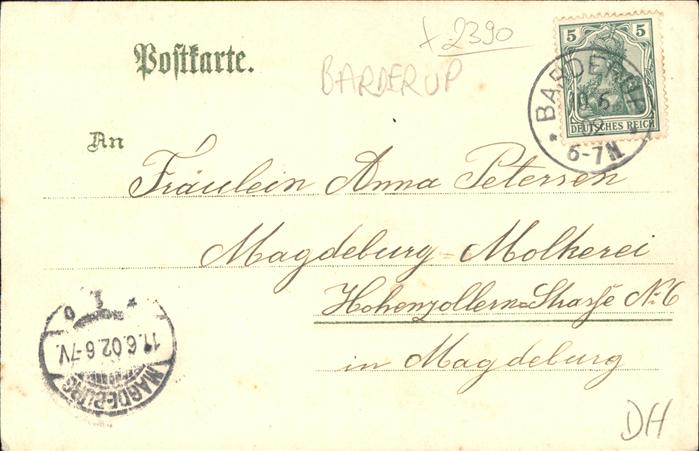 Postkarte.
x 2390
BARDERUP
5 5
DEUTSCHES REICH
* BARDERUP *
02
6-7N
An
Fräulein Anna Petersen
Magdeburg-Molkerei
Hohenzollern-Straße No 6
in Magdeburg
MAGDEBURG
11.6.02.6-7V.
DH